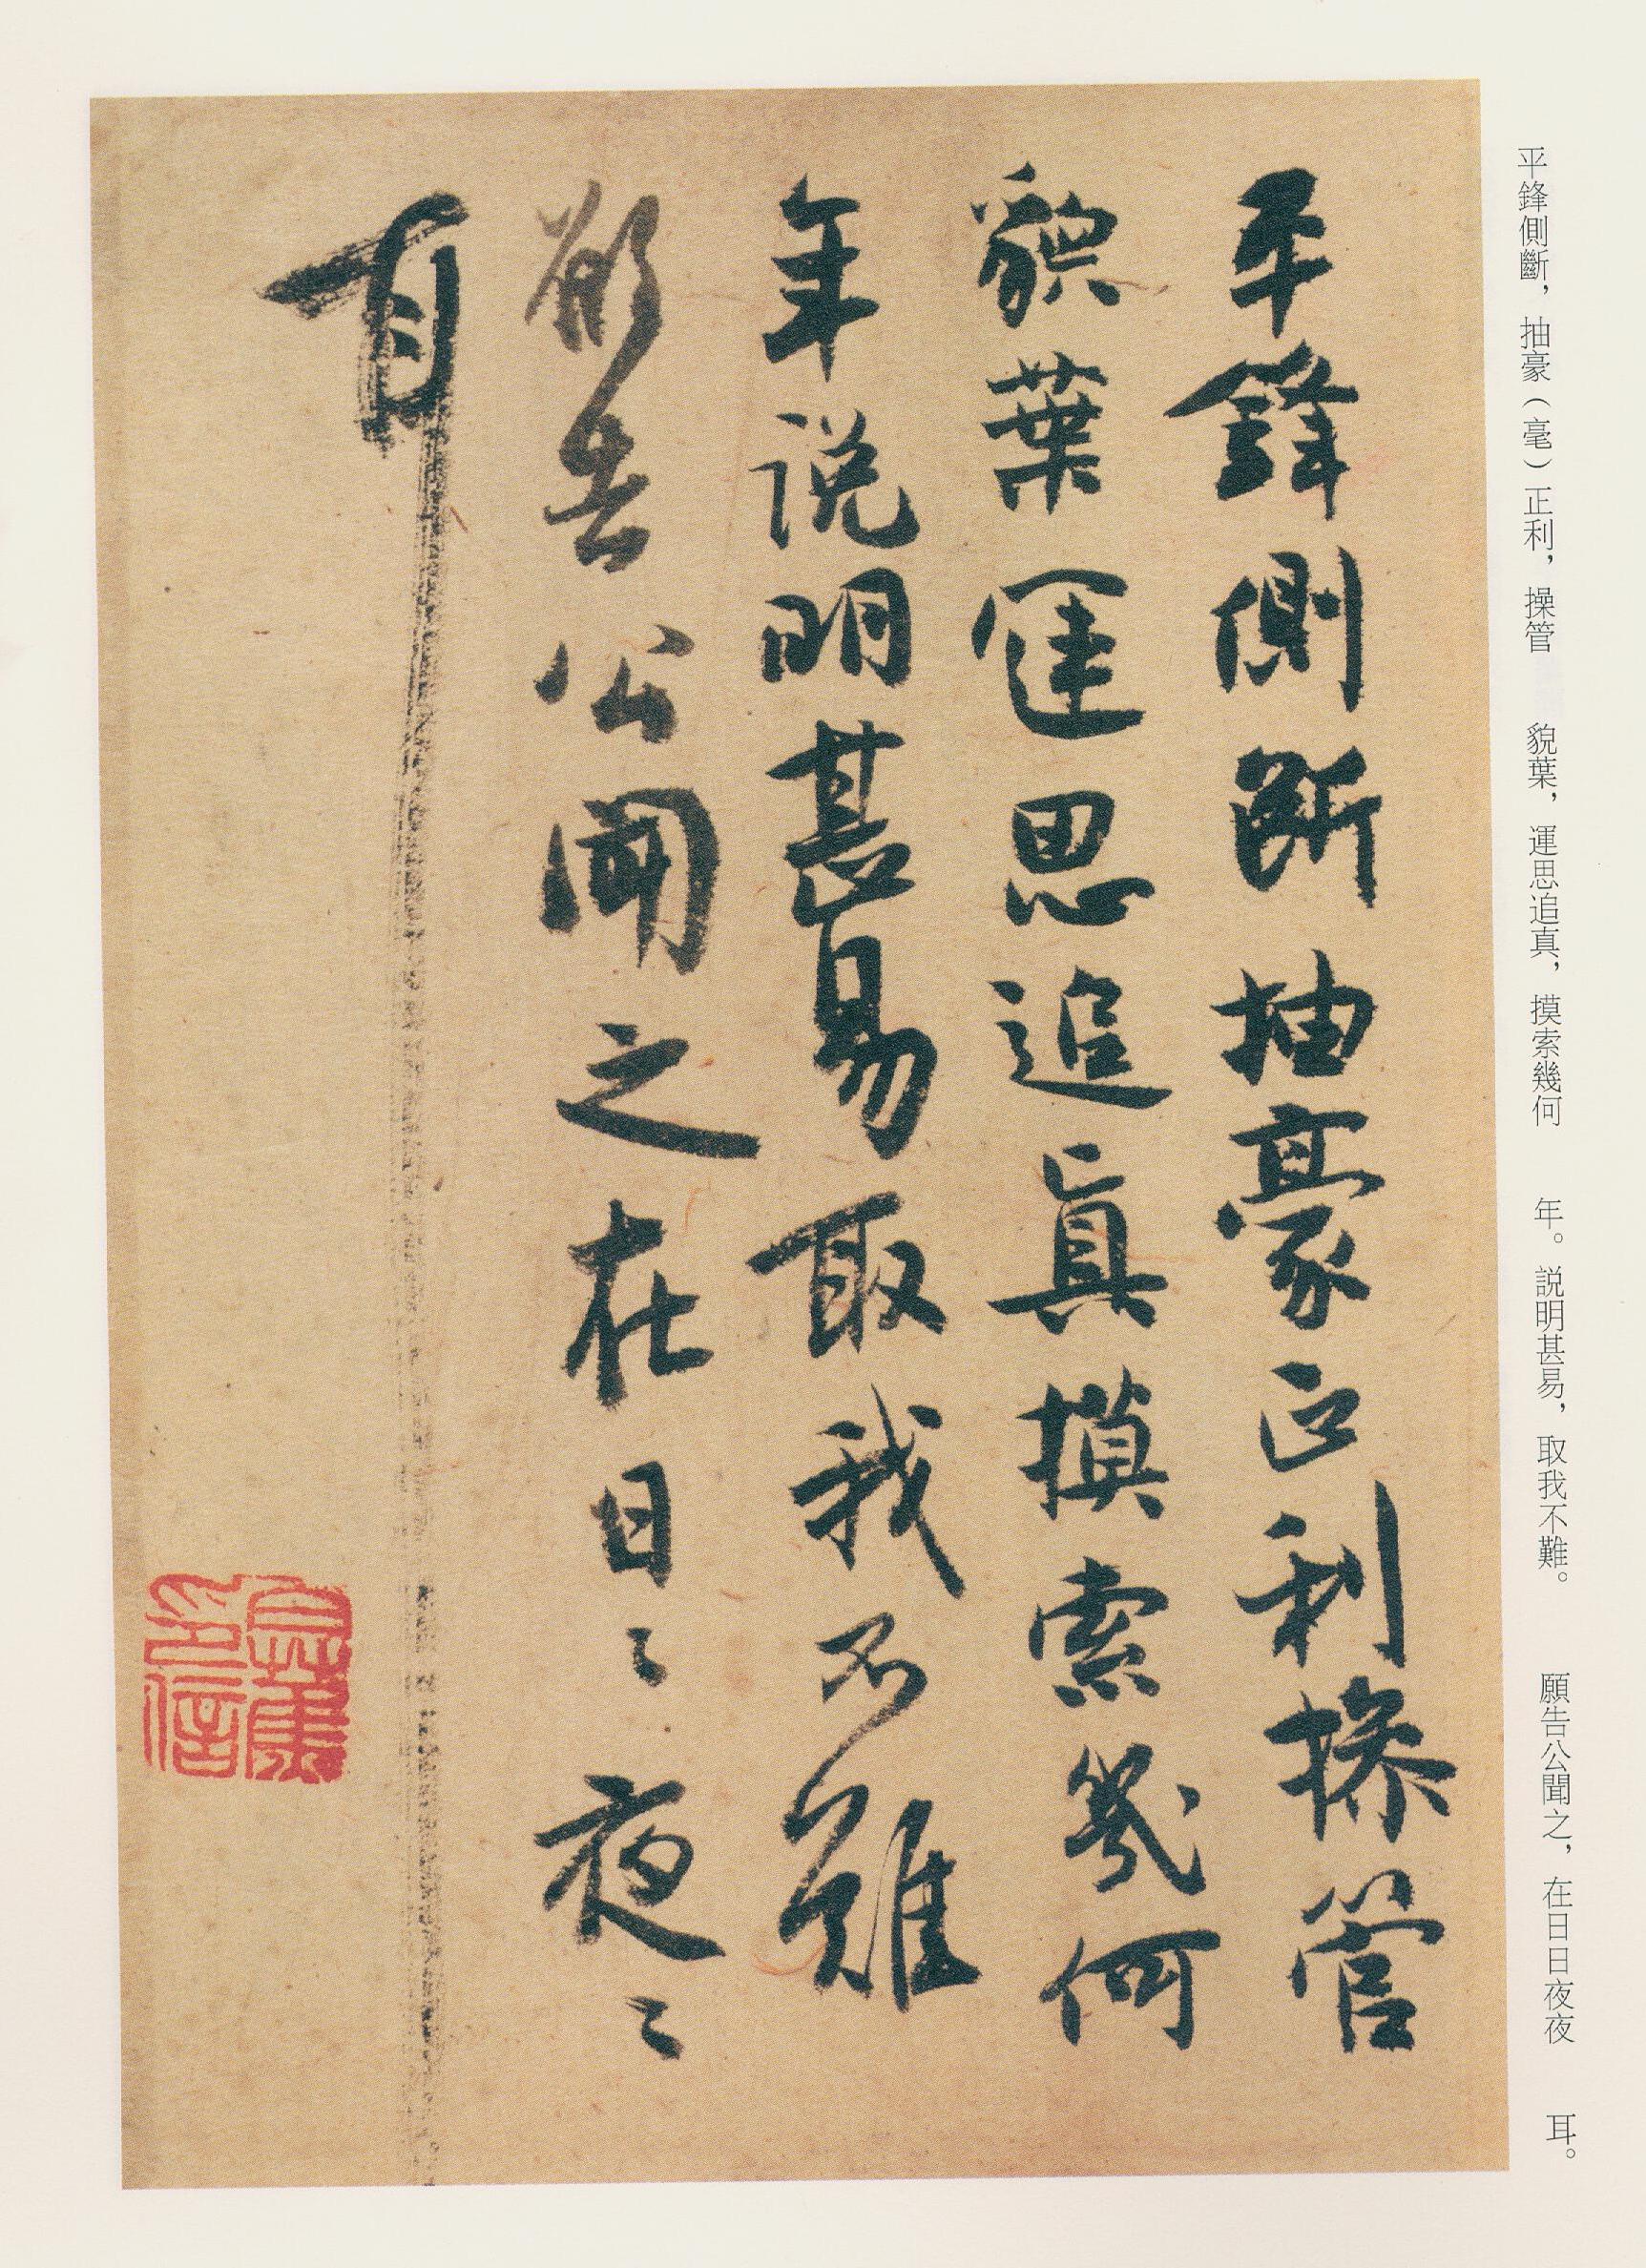 平鋒側斷，抽豪（毫）正利，操管　貌葉，運思追真，摸索幾何　年。説明甚易，取我不難。　願告公聞之，在日日夜夜　耳。
平鋒側斷抽豪正利操管
貌葉運思追真摸索幾何
年説明甚易取我不難
願告公聞之在日〻夜〻
耳